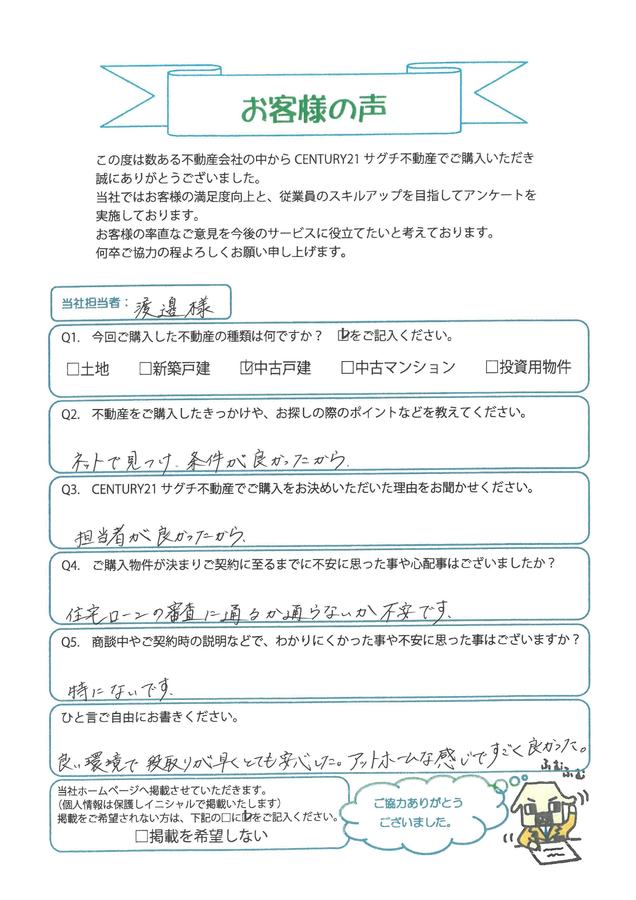 お客様の声
この度は数ある不動産会社の中から CENTURY21 サグチ不動産でご購入いただき
誠にありがとうございました。
当社ではお客様の満足度向上と、従業員のスキルアップを目指してアンケートを
実施しております。
お客様の率直なご意見を今後のサービスに役立てたいと考えております。
何卒ご協力の程よろしくお願い申し上げます。
当社担当者： 渡邉様
Q1. 今回ご購入した不動産の種類は何ですか？ ☑をご記入ください。
□土地 □新築戸建 ☑中古戸建 □中古マンション □投資用物件
Q2. 不動産をご購入したきっかけや、お探しの際のポイントなどを教えてください。
ネットで見つけ、条件が良かったから。
Q3. CENTURY21 サグチ不動産でご購入をお決めいただいた理由をお聞かせください。
担当者が良かったから。
Q4. ご購入物件が決まりご契約に至るまでに不安に思った事や心配事はございましたか？
住宅ローンの審査に通るか通らないか不安です。
Q5. 商談中やご契約時の説明などで、わかりにくかった事や不安に思った事はございますか？
特にないです。
ひと言ご自由にお書きください。
良い環境で段取りが早くとても安心した。アットホームな感じですごく良かった。
ふむふむ
当社ホームページへ掲載させていただきます。
（個人情報は保護しイニシャルで掲載いたします）
掲載をご希望されない方は、下記の□に☑をご記入ください。
□掲載を希望しない
ご協力ありがとう
ございました。